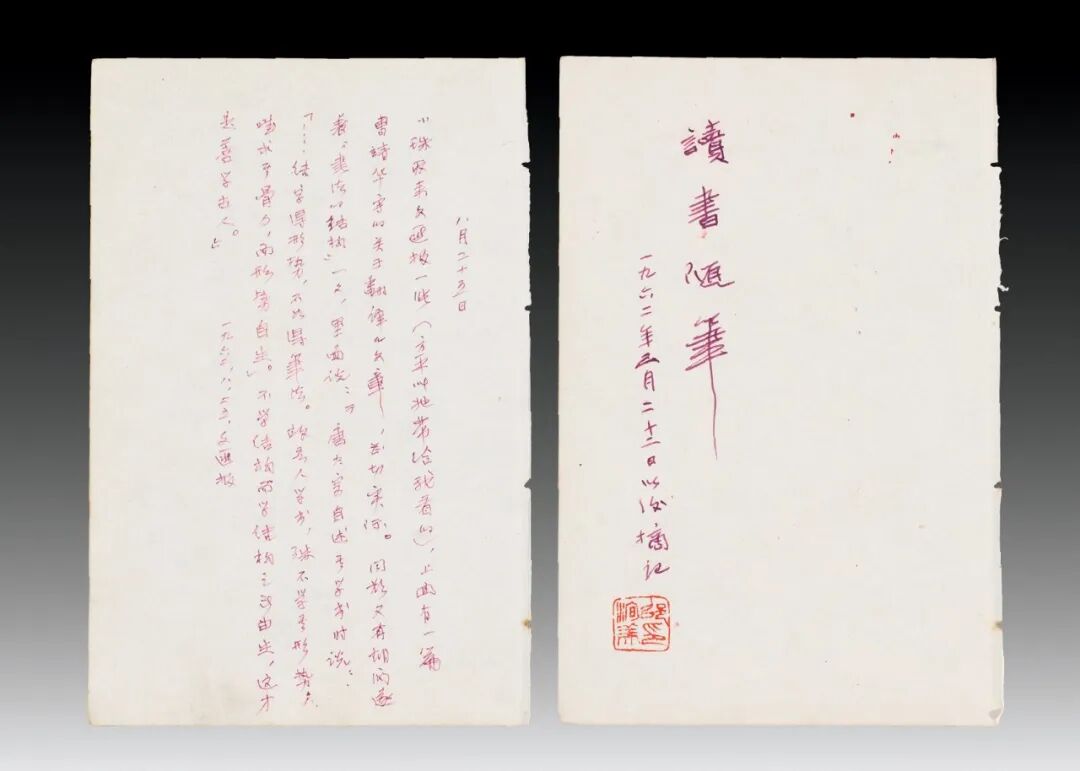 讀書隨筆
一九六二年五月二十二日以後摘记
邵印洵美
八月二十五日
小珠取来文匯报一张（方平叫她带给我看的），上面有一篇
曹靖华写的关于翻译的文章，甚切实际。同版又有胡问遂
者“書法的结构”一文，里面说：“唐太宗自述其学书时说：
「……结字得形势，不如得筆法。故吾人学书，殊不学其形势，
唯求其骨力，而形势自生」。不学结构而学结构之所由生，这才
是善学古人。”
一九六二，八，二五，文匯报